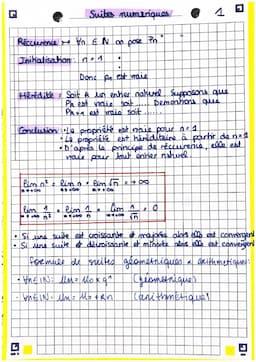 Suites numeriques 1
Récurrence → ∀n ∈ N on pose Pn
Initialisation : n = 1
Donc Pn est vraie
Hérédité : Soit k un entier naturel supposons que
Pk est vraie soit ..... Demontrons que
Pk+1 est vraie soit .....
Conclusion : • La propriété est vraie pour n = 1
• La propriété est héréditaire à partir de n = 1
• D'après le principe de récurrence, elle est
vraie pour tout entier naturel
lim n² = lim n = lim √n = +∞
n→+∞ n→+∞ n→+∞
lim 1/n² = lim 1/n = lim 1/√n = 0
n→+∞ n→+∞ n→+∞
• Si une suite est croissante et majorée alors elle est convergent
• Si une suite est décroissante et minorée alors elle est convergent
formule de suites géométriques & arithmetiques:
• ∀n∈IN: Un = U0 × qⁿ (géométrique)
• ∀n∈IN: Un = U0 + Rn (arithmétique)